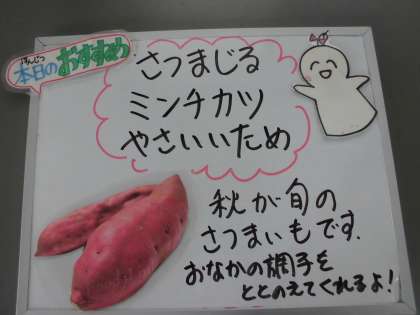 ほんじつ
本日のおすすめ
さつまじる
ミンチカツ
やさいいため
秋が旬の
さつまいもです.
おなかの調子を
ととのえてくれるよ!